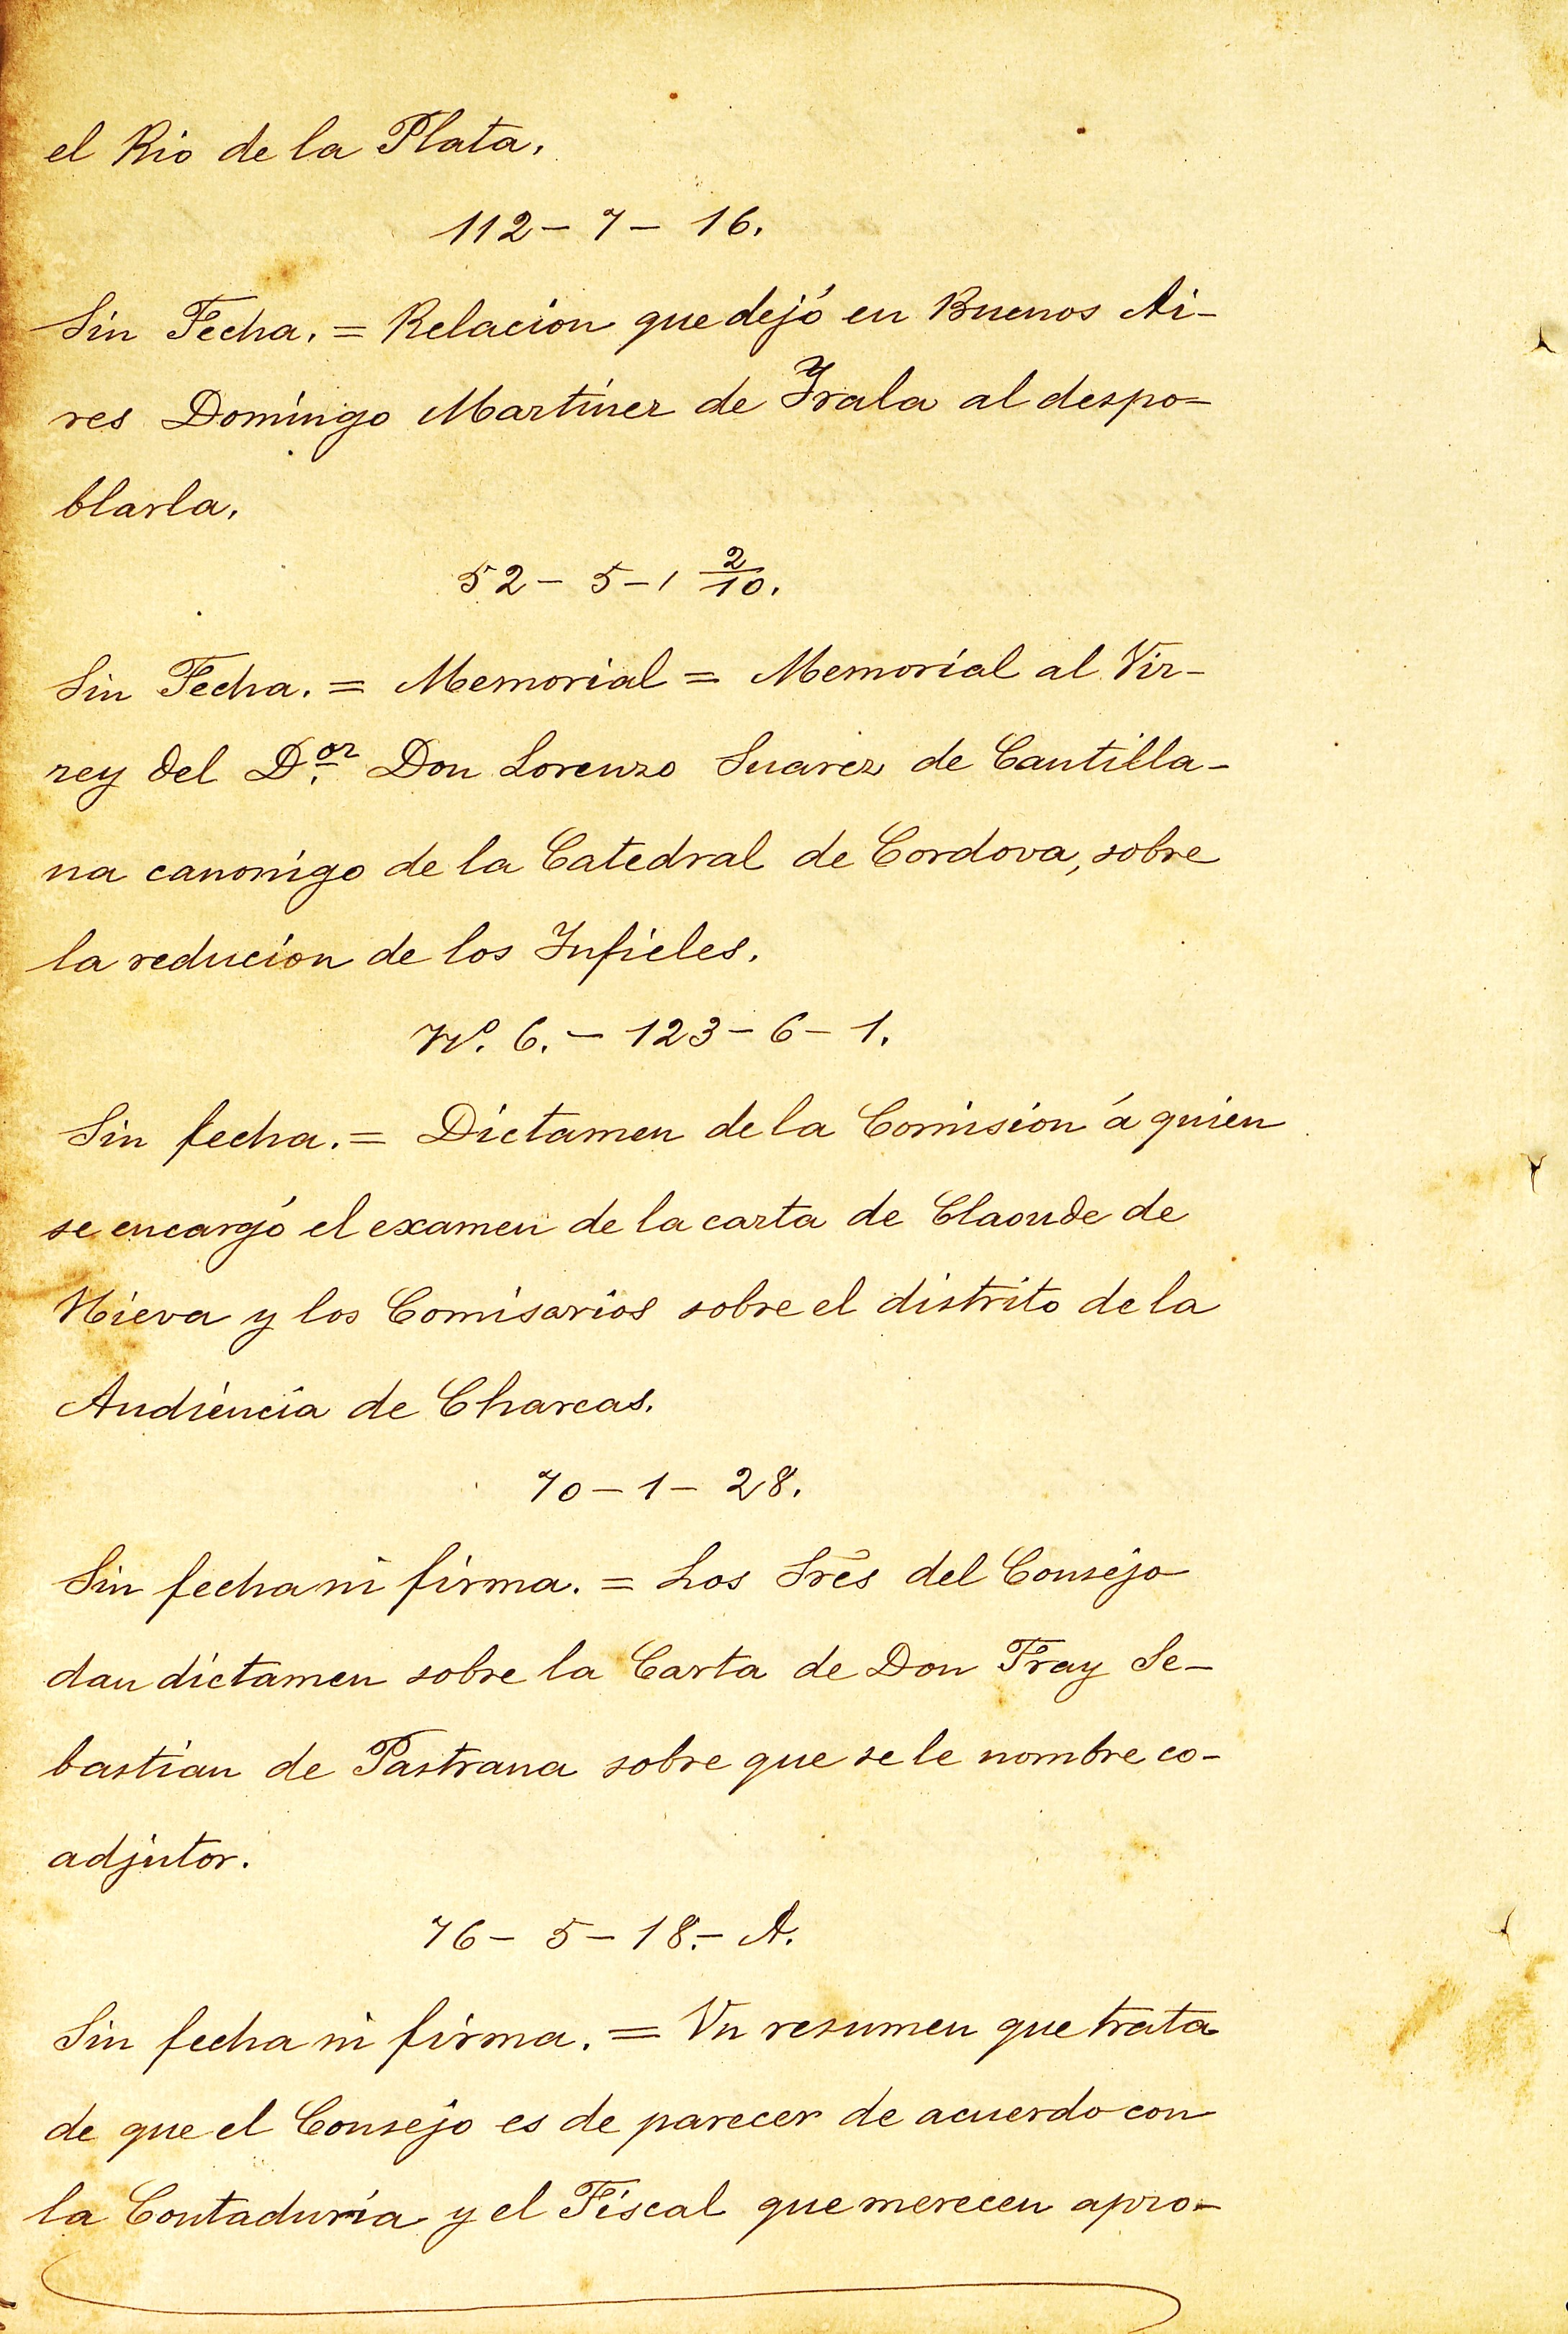 el Rio de la Plata.
112 – 7 – 16.
Sin Fecha. = Relacion que dejó en Buenos Ai-
res Domingo Martinez de Yrala al despo=
blarla.
52 – 5 – 1 2/10.
Sin Fecha. = Memorial = Memorial al Vir-
rey del D.or Don Lorenzo Suarez de Cantilla-
na canonigo de la Catedral de Cordova, sobre
la reducion de los Ynfieles.
Nº. 6. – 123 – 6 – 1.
Sin fecha. = Dictamen de la Comision á quien
se encargó el examen de la carta de Claonde de
Nieva y los Comisarios sobre el distrito de la
Audiencia de Charcas.
70 – 1 – 28.
Sin fecha ni firma. = Los Srēs del Consejo
dan dictamen sobre la Carta de Don Fray Se-
bastian de Pastrana sobre que se le nombre co-
adjutor.
76 – 5 – 18. – A.
Sin fecha ni firma. = Vn resumen que trata
de que el Consejo es de parecer de acuerdo con
la Contaduria y el Fiscal que merecen apro-